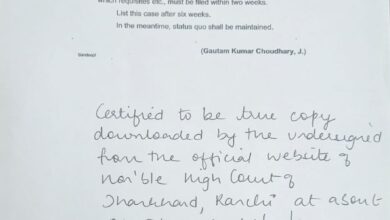 which requisites etc., must be filed within two weeks.
List this case after six weeks.
In the meantime, status quo shall be maintained.
(Gautam Kumar Choudhary, J.)
Sandeep/
Certified to be true copy
downloaded by the undersigned
from the official website of
Hon'ble High Court of
Jharkhand, Ranchi at about